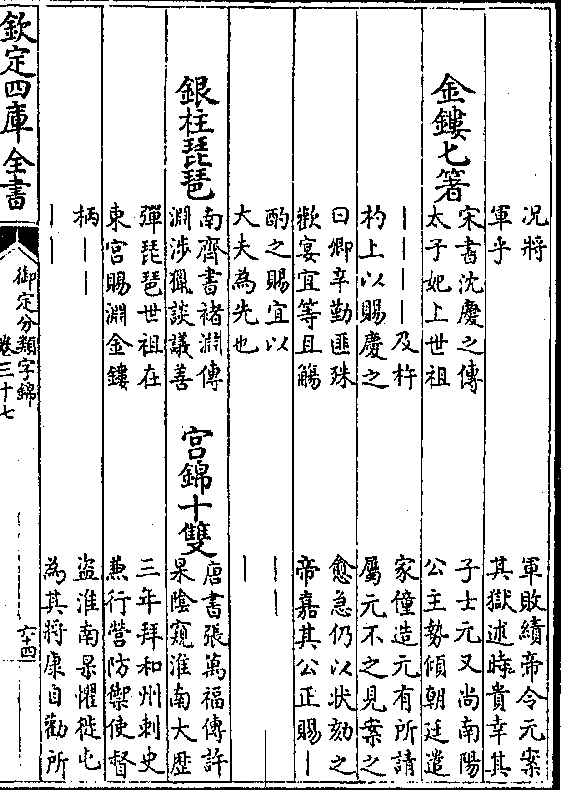 况將
軍乎
金鏤匕箸
宋書沈慶之傳
太子妃上世祖
｜｜｜｜及杵
杓上以賜慶之
曰卿辛勤匪殊
歡宴宜等且觴
酌之賜宜以
大夫為先也
銀柱琵琶
南齊書褚淵傳
淵涉獵談議善
彈琵琶世祖在
東宫賜淵金鏤
柄｜｜
｜｜
軍敗績帝令元案
其獄述時貴幸其
子士元又尚南陽
公主勢傾朝廷遣
家僮造元有所請
屬元不之見案之
愈急仍以状劾之
帝嘉其公正賜｜
｜｜
｜
宫錦十雙
唐書張萬福傳許
杲陰窺淮南大歴
三年拜和州刺史
兼行營防禦使督
盗淮南杲懼徙屯
為其將康自勸所
欽定四庫全書
御定分類字錦
卷三十七
六十四